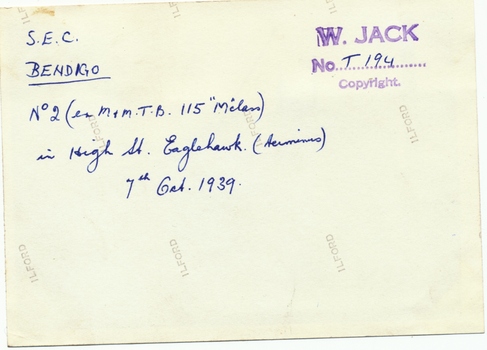 S.E.C.
BENDIGO
W. JACK
No. T 194
Copyright.
No 2 (ex M & M.T.B. 115 "M" class)
in High St. Eaglehawk. (terminus)
7th Oct. 1939.
ILFORD
ILFORD
ILFORD
ILFORD
ILFORD
ILFORD
ILFORD
ILFORD
ILFORD